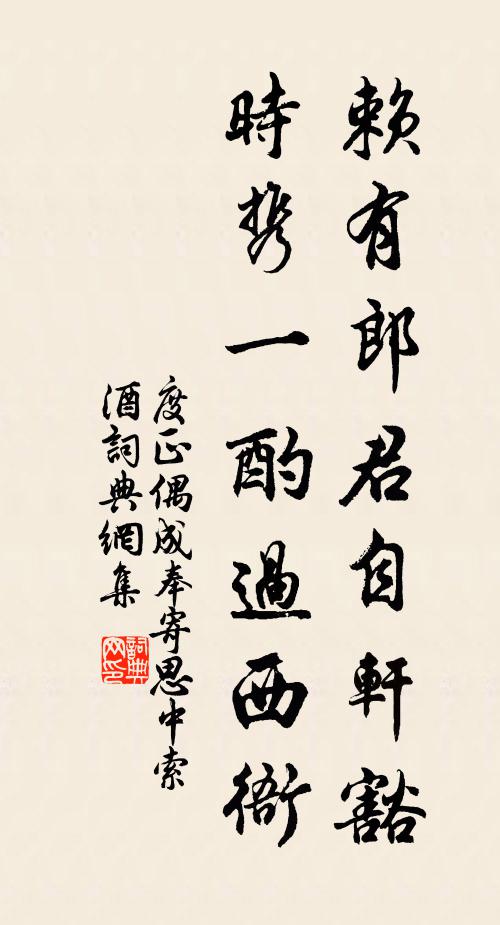 賴有郎君自軒豁
時攜一酌過西衙
度正偶成奉寄思中索
酒詞典網集
詞典
网印